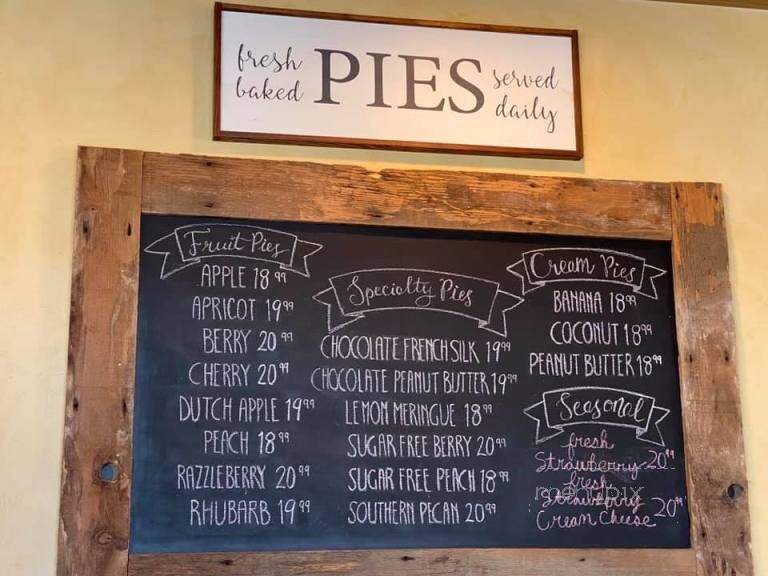 fresh baked PIES served daily
Fruit Pies
APPLE 18 99
APRICOT 19 99
BERRY 20 99
CHERRY 20 99
DUTCH APPLE 19 99
PEACH 18 99
RAZZLEBERRY 20 99
RHUBARB 19 99
Specialty Pies
CHOCOLATE FRENCH SILK 19 99
CHOCOLATE PEANUT BUTTER 19 99
LEMON MERINGUE 18 99
SUGAR FREE BERRY 20 99
SUGAR FREE PEACH 18 99
SOUTHERN PECAN 20 99
Cream Pies
BANANA 18 99
COCONUT 18 99
PEANUT BUTTER 18 99
Seasonal
fresh
Strawberry 20 99
fresh
Strawberry
Cream Cheese 20 99
menupix